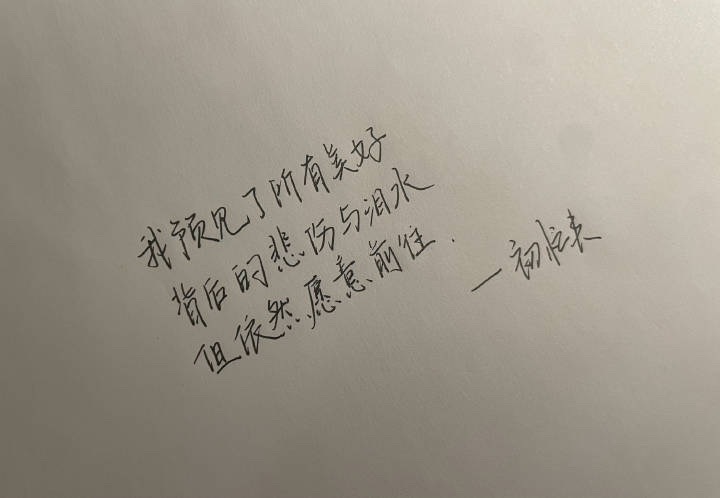 我预见了所有美好
背后的悲伤与泪水
但依然愿意前往.
—初